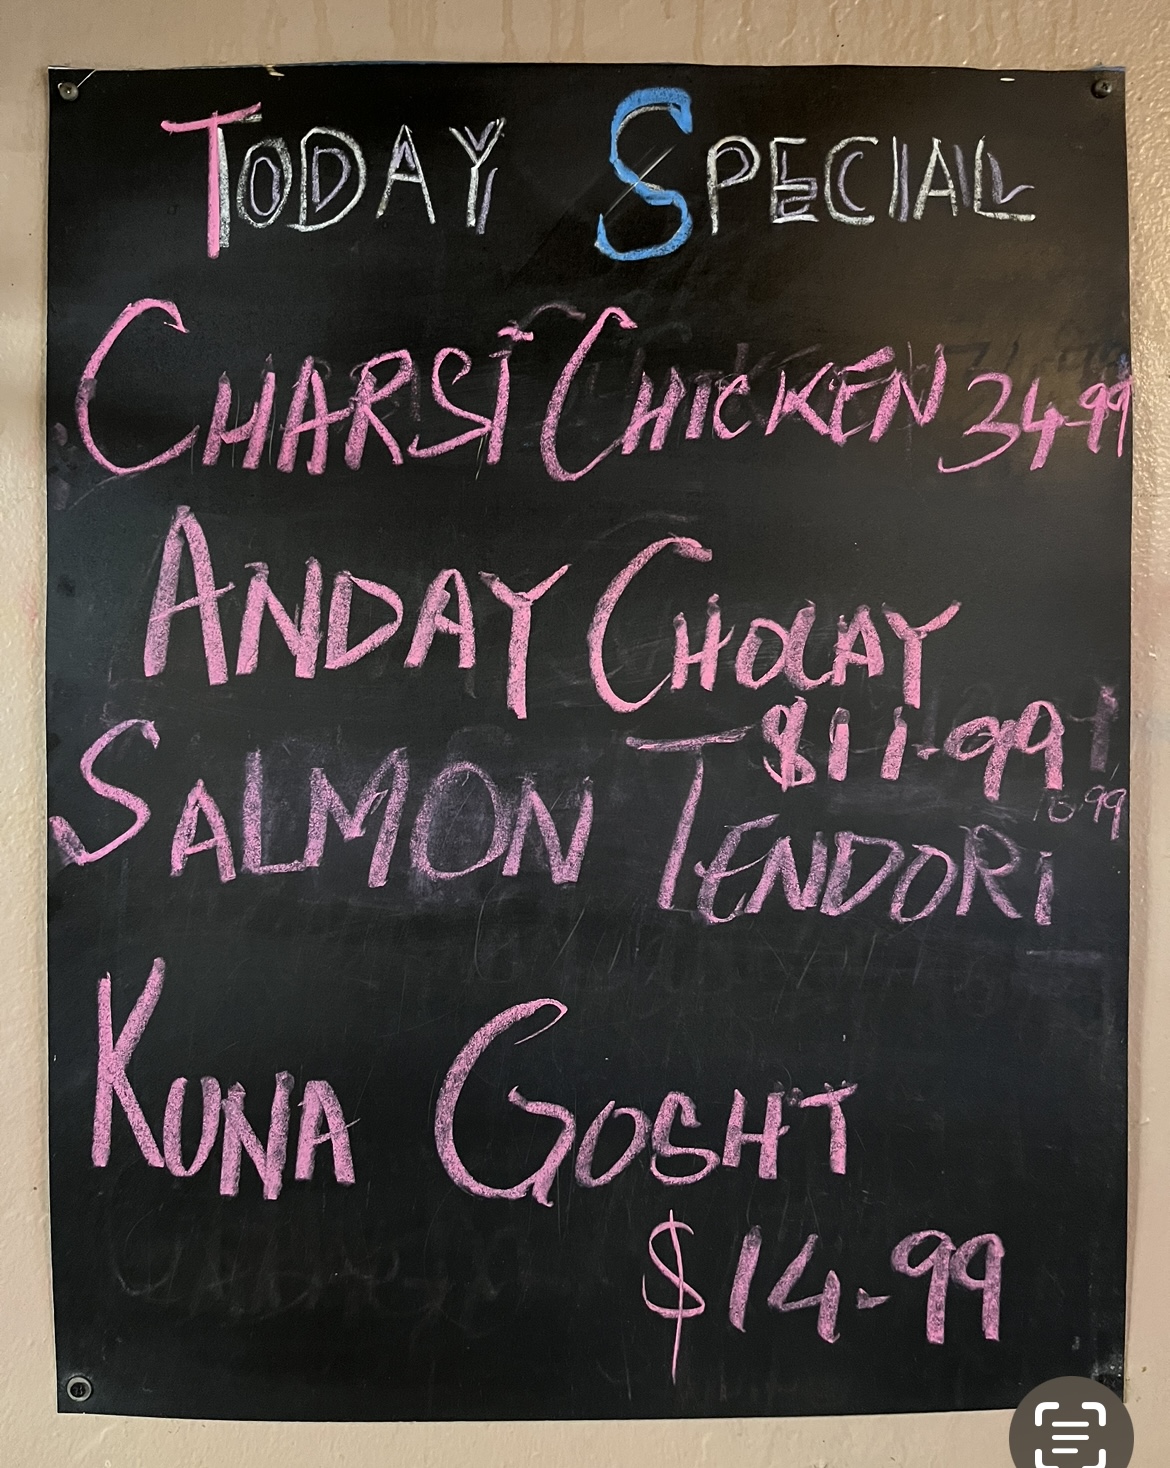 TODAY SPECIAL
CHARSI CHICKEN 34.99
ANDAY CHOLAY
$11.99
SALMON TENDORI
KUNA GOSHT
$14.99